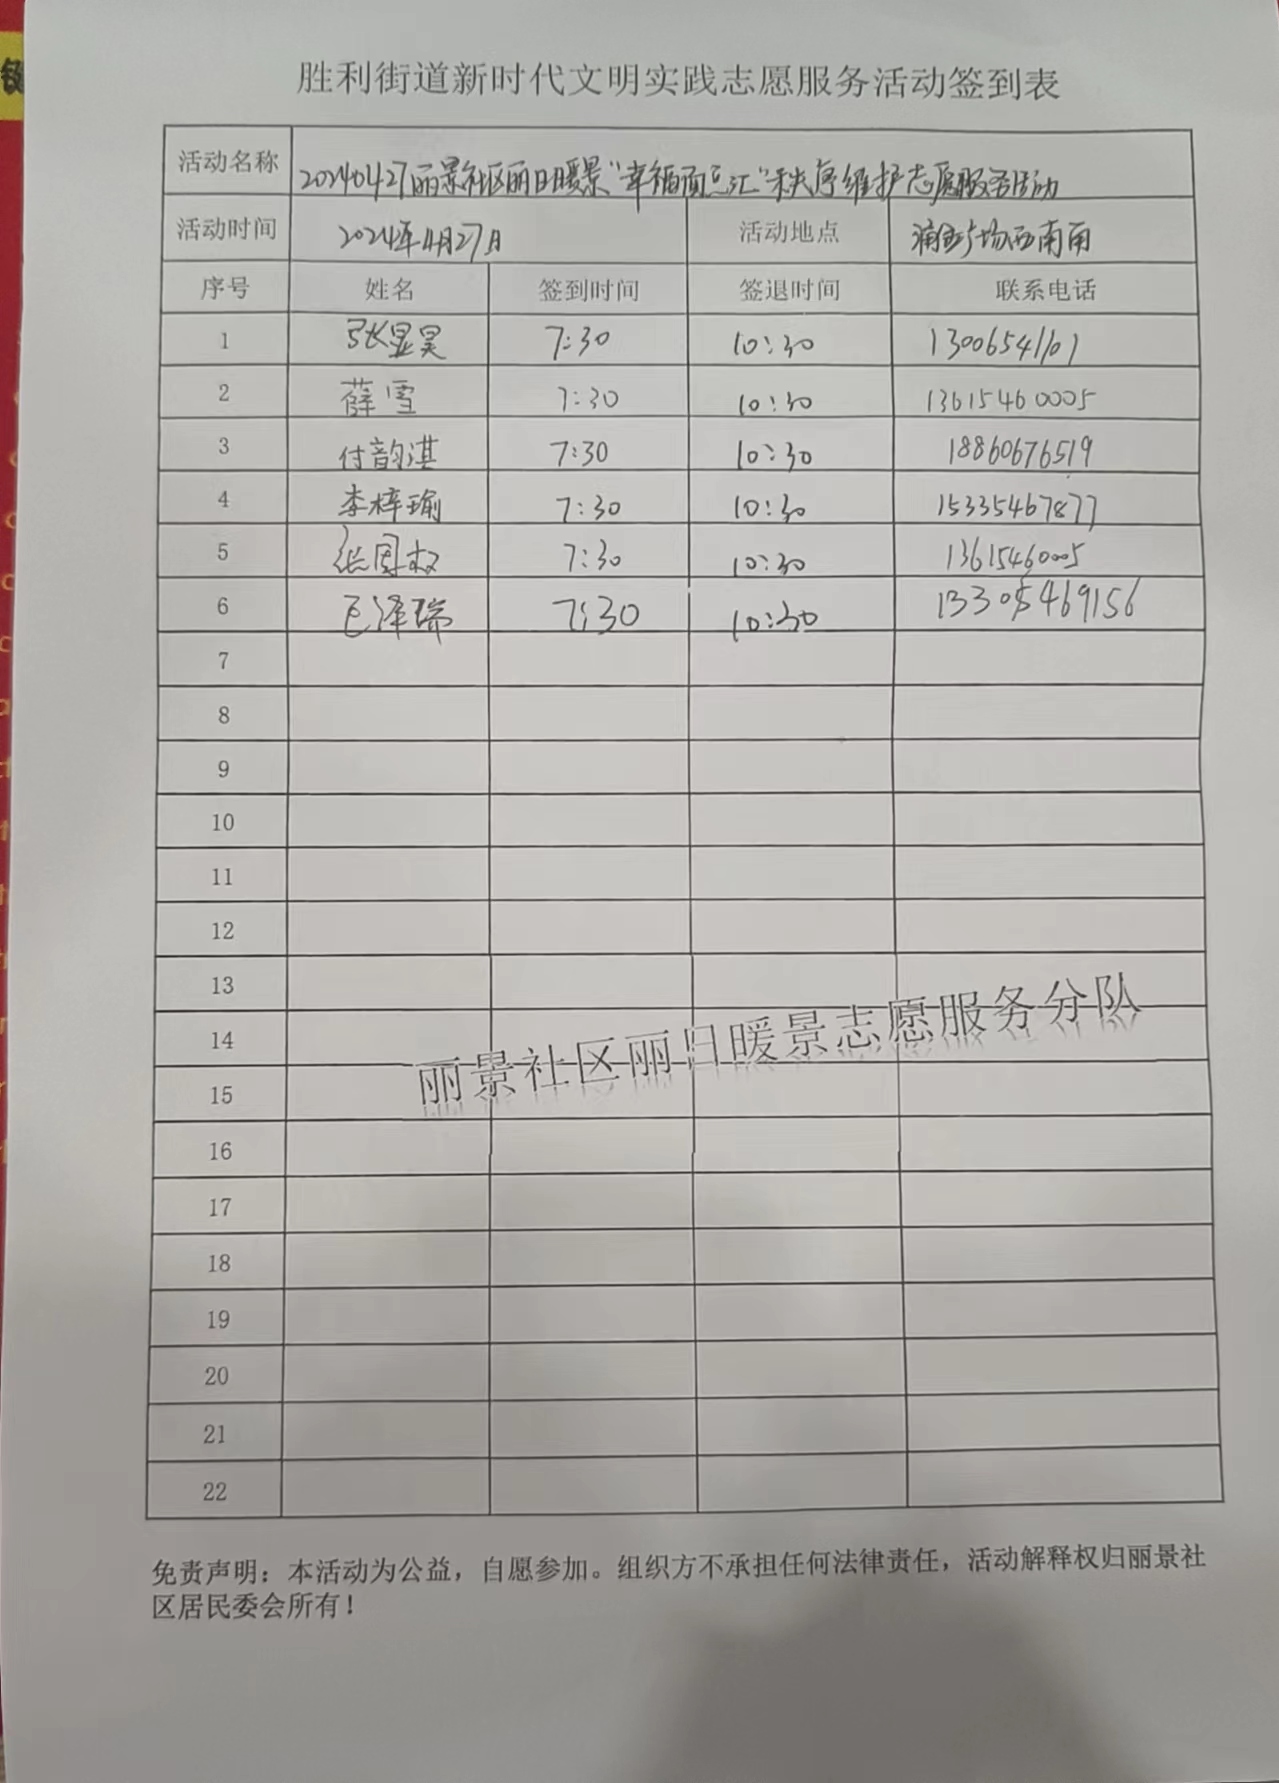 胜利街道新时代文明实践志愿服务活动签到表
活动名称 20240427丽景社区丽日暖景“幸福面点汇”秩序维护志愿服务活动
活动时间 2024年4月27日 活动地点 广场西南角
序号 姓名 签到时间 签退时间 联系电话
1 张昱昊 7:30 10:30 13006541101
2 薛雪 7:30 10:30 13615460005
3 付韵淇 7:30 10:30 18860676519
4 李梓瑜 7:30 10:30 15335467877
5 张周权 7:30 10:30 13615460005
6 泽瑞 7:30 10:30 13305469156
7
8
9
10
11
12
13
14
丽景社区丽日暖景志愿服务分队
15
16
17
18
19
20
21
22
免责声明：本活动为公益，自愿参加。组织方不承担任何法律责任，活动解释权归丽景社
区居民委会所有！